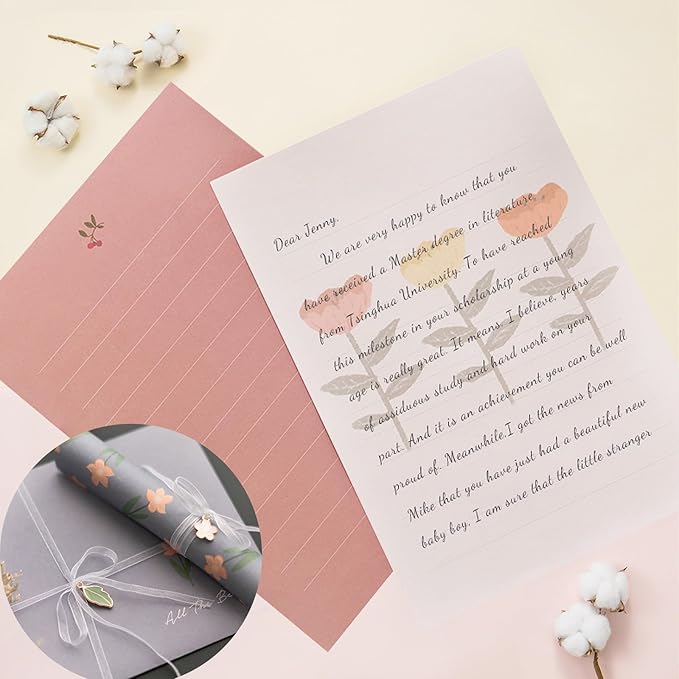 Dear Jenny,
We are very happy to know that you
have received a Master degree in literature
from Tsinghua University. To have reached
this milestone in your scholarship at a young
age is really great. It means, I believe, years
of assiduous study and hard work on your
part. And it is an achievement you can be well
proud of. Meanwhile,I got the news from
Mike that you have just had a beautiful new
baby boy. I am sure that the little stranger
All The Be